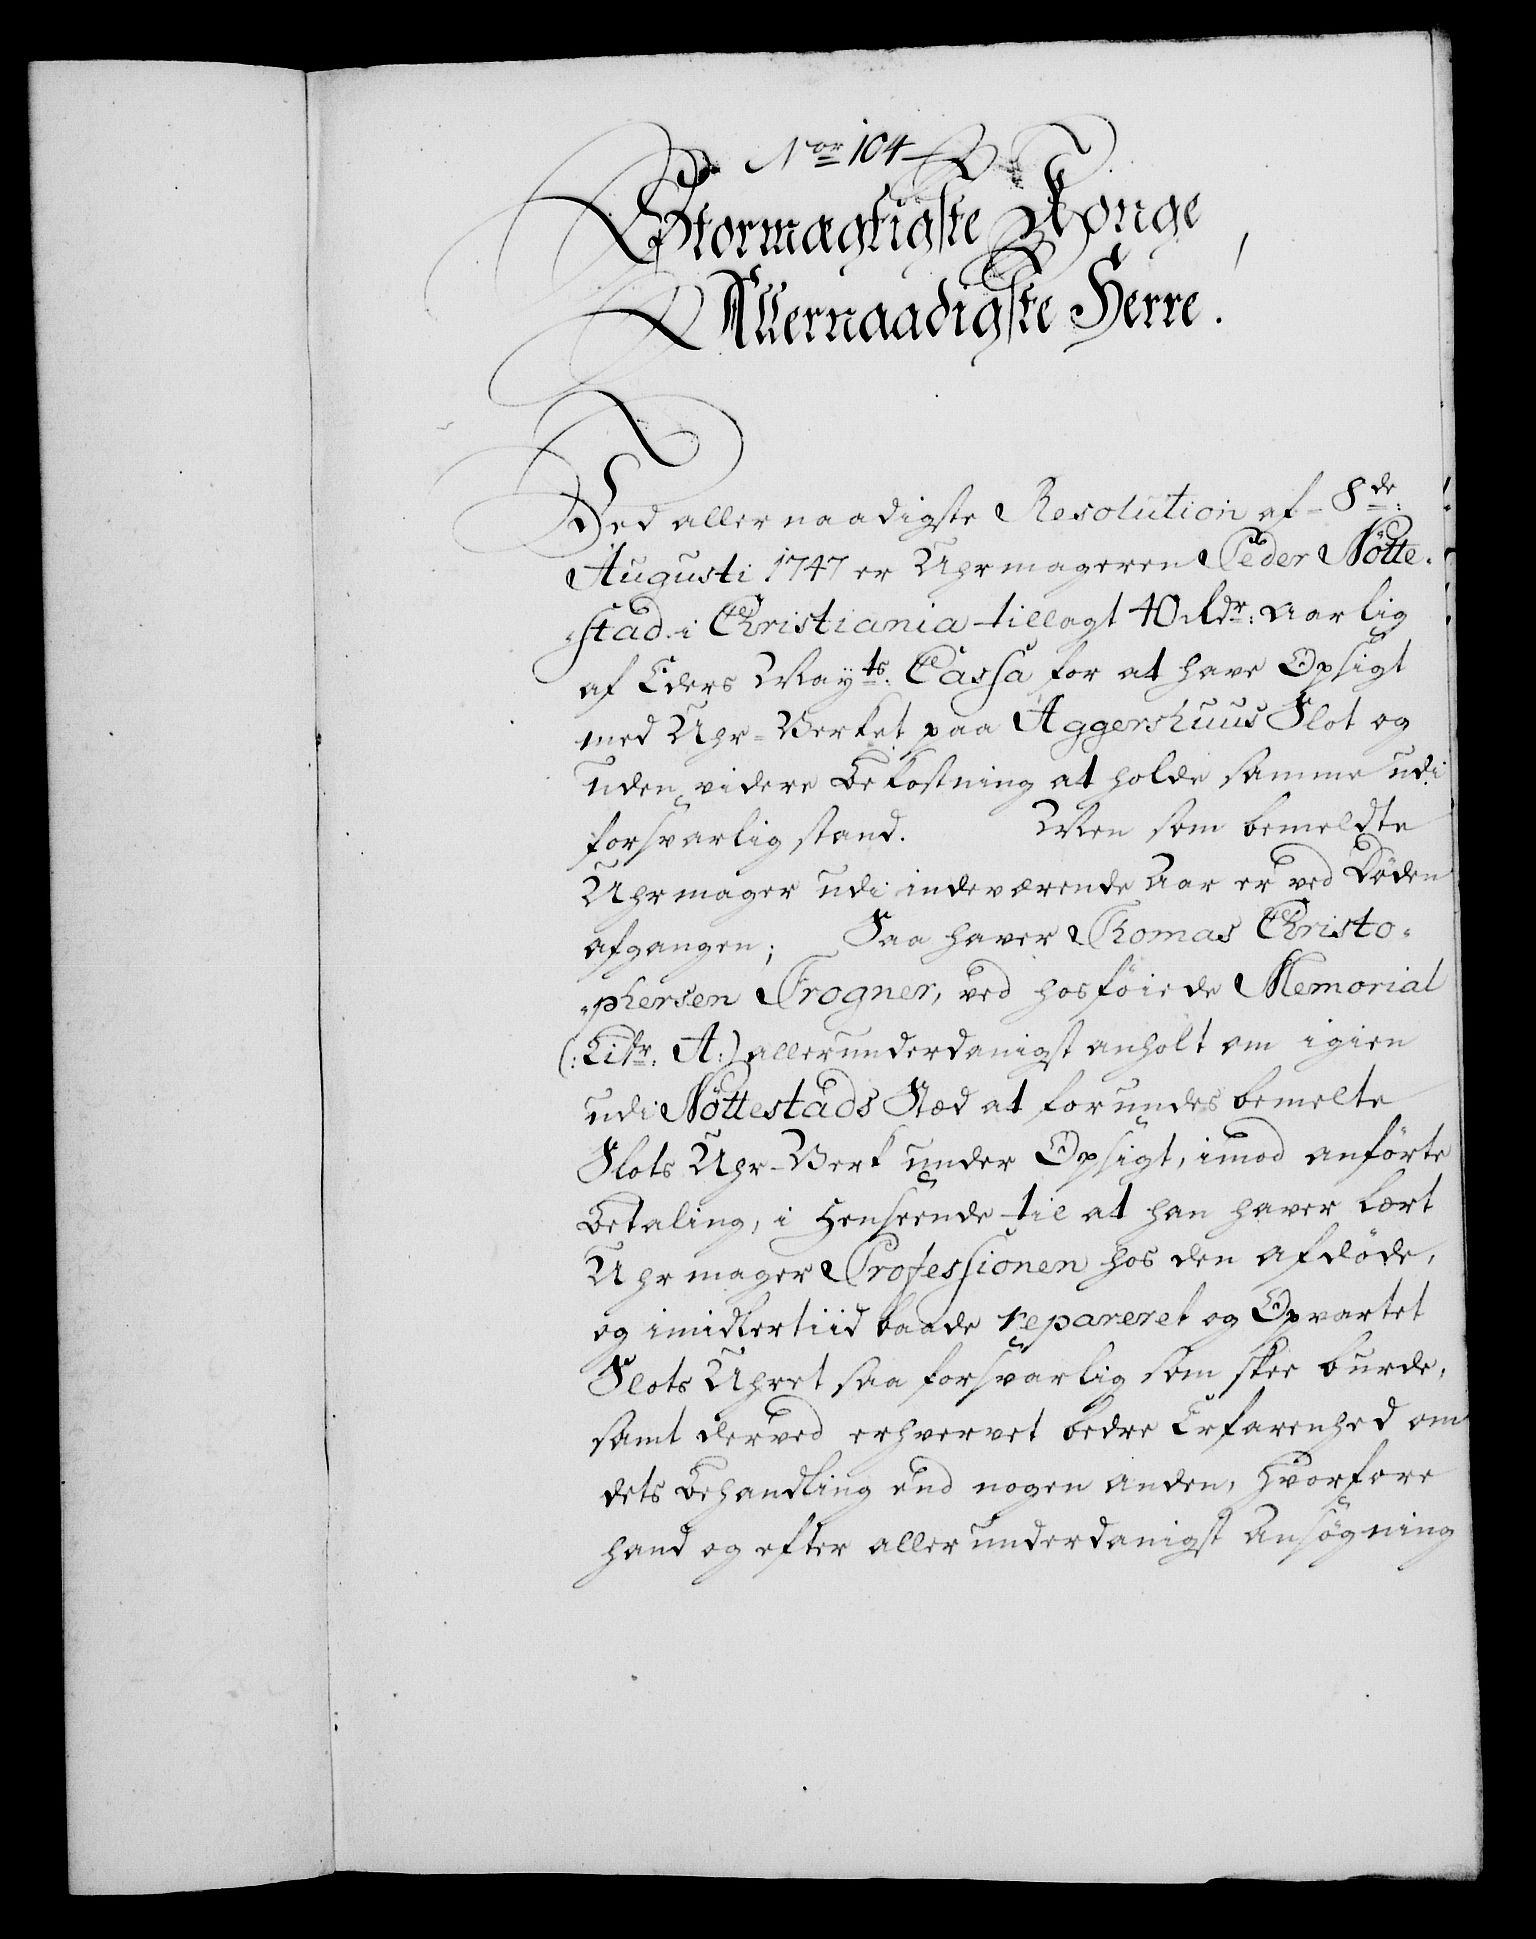 Nor 104
Stormægtigste Konge,
Allernaadigste Herre.
Ved allernaadigste Resolution af 8de:
Augusti 1747 er Uhrmageren Peder Nötte-
-stad i Christiania tillagt 40 Rdr: aarlig
af Eders Mayts: Cassa for at have Opsigt
med Uhr-Verket paa Aggershuus Slot og
uden videre bekostning at holde samme udi
forsvarlig stand. Men som bemeldte
Uhrmager udi indeværende Aar er ved Döden
afgangen; Saa haver Thomas Christo-
-phersen Frogner, ved hosföiede Memorial
(: Litr: A:) allerunderdanigst anholt om igien
udi Nöttestads Stæd at forundes bemelte
Slots Uhr-Verk under Opsigt, imod anförte
betaling, i Henseende til at han haver lært
Uhrmager Professionen hos den afdöde,
og imidlertiid baade repareret og Opvartet
Slots Uhret saa forsvarlig som skee burde,
samt derved erhvervet bedre Erfarenhed om
dets behandling end nogen anden, hvorfore
hand og efter allerunderdanigst Ansögning